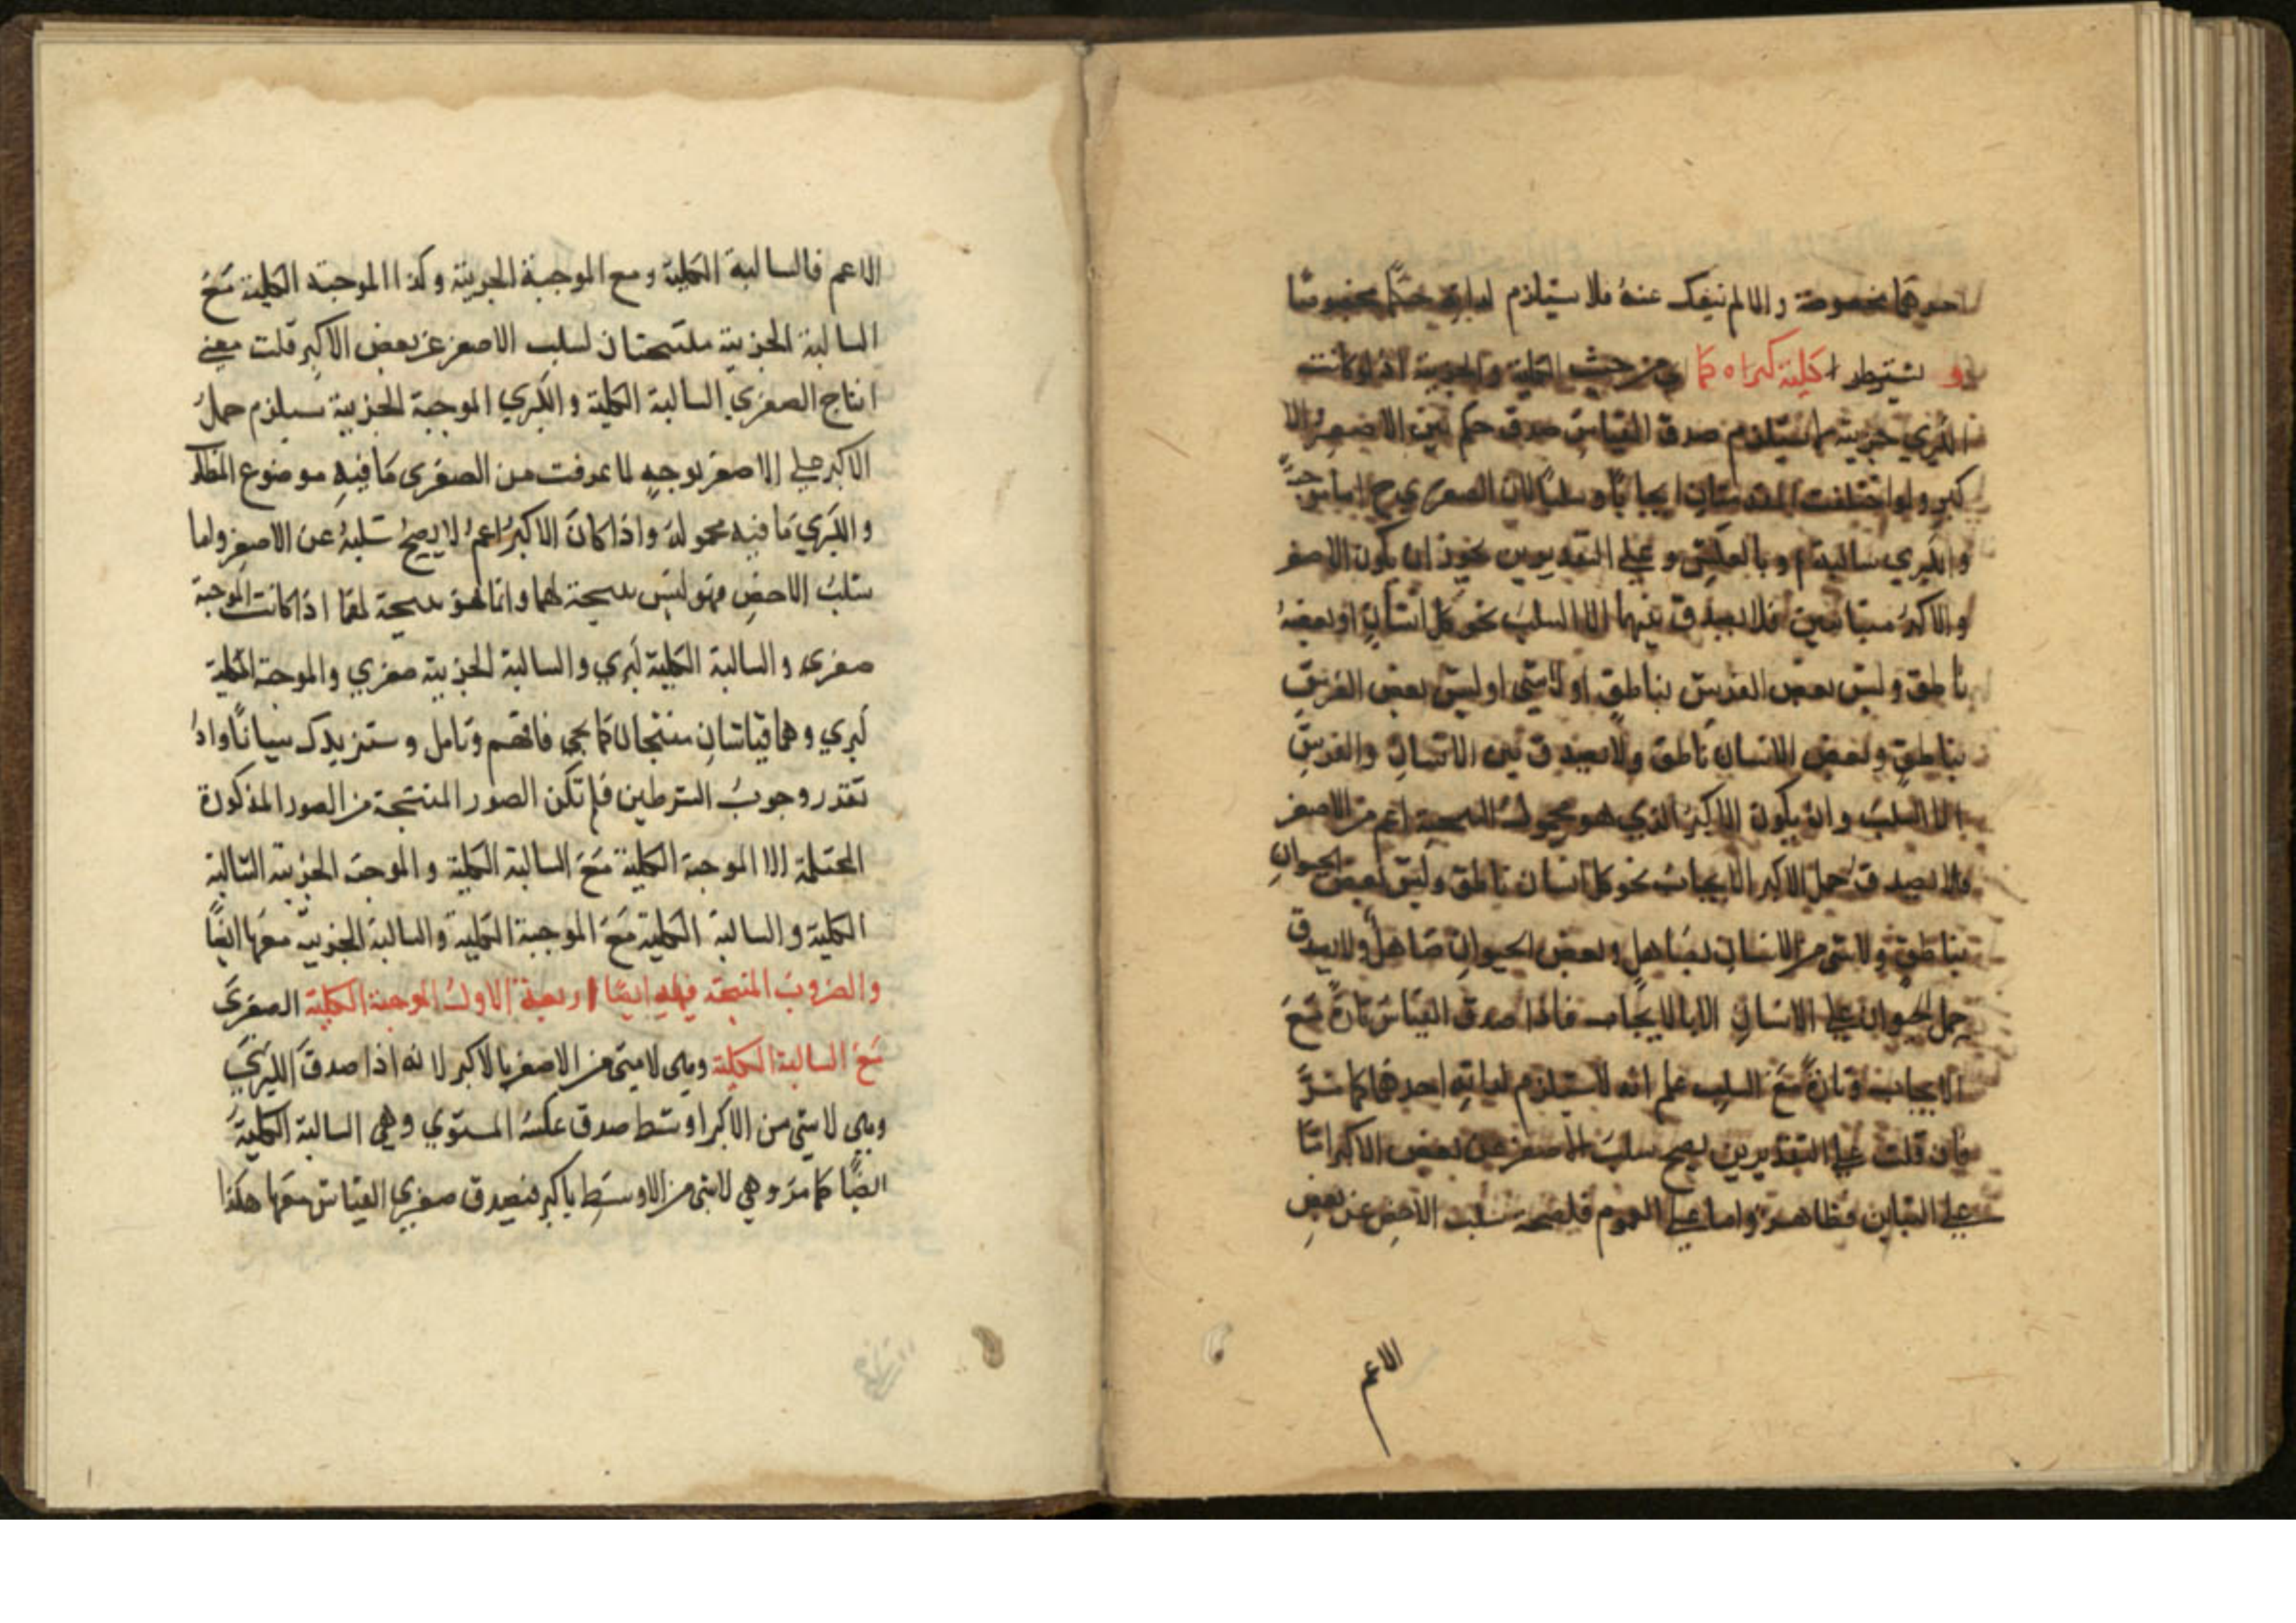 احدهما مخصوصة والا لم ينفك عنه فلا يستلزم لذاته حكما مخصوصا
و يشترط كلية كبراه كما اي من حيث الكلية والجزية اذ لو كانت
الكبري جزية لما استلزم صدق القياس صدق حكم بين الاصغر والا
كبر ولو اختلفت المقدمتان ايجابا وسلبا لان الصغري ح اما موجبة
والكبري سالبة او بالعكس و علي التقديرين يجوز ان يكون الاصغر
والاكبر متباينين فلا يصدق بينهما الا السلب نحو كل انسان او بعضه
ناطق وليس بعض الفرس بناطق او لا شي او ليس بعض الفرس
بناطق وبعض الانسان ناطق ولا يصدق بين الانسان والفرس
الا السلب وان يكون الاكبر الذي هو محمول النتيجة اعم من الاصغر
فلا يصدق حمل الاكبر الا بايجاب نحو كل انسان ناطق وليس بعض الحيوان
بناطق ولا شي من الانسان بصاهل وبعض الحيوان صاهل ولا يصدق
حمل الحيوان علي الانسان الا بالايجاب فاذا صدق القياس تارة مع
الايجاب وتارة مع السلب علم انه لا يستلزم لذاته احدهما كما مر
فان قلت علي التقديرين يصح سلب الاصغر عن بعض الاكبر اما
علي التباين فظاهر واما علي العموم فلصحة سلب الاخص عن بعض
الاعم
الاعم فالسالبة الكلية ومع الموجبة الجزية وكذا الموجبة الكلية مع
السالبة الجزية منتجتان لسلب الاصغر عن بعض الاكبر قلت معني
انتاج الصغري السالبة الكلية والكبري الموجبة الجزية يستلزم حمل
الاكبر علي الاصغر بوجه لما عرفت من الصغري ما فيه موضوع المطلوب
والكبري ما فيه محموله واذا كان الاكبر اعم لا يصح سلبه عن الاصغر واما
سلب الاخص فهو ليس نتيجة لهما وانما هو نتيجة لهما اذا كانت الموجبة
صغري والسالبة الكلية كبري والسالبة الجزية صغري والموجبة الكلية
كبري وهما قياسان منتجان كما يجي فافهم وتامل وستزيدك بيانا واذا
تقدر وجوب الشرطين فلم تكن الصور المنتجة من الصور المذكورة
المحتملة الا الموجبة الكلية مع السالبة الكلية والموجبة الجزية السالبة
الكلية والسالبة الكلية مع الموجبة الكلية والسالبة الجزية معها ايضا
والضروب المنتجة فيه ايضا اربعة الاول الموجبة الكلية الصغري
مع السالبة الكلية وهي لا شي من الاصغر بالاكبر لانه اذا صدق الكبري
وهي لا شي من الاكبر اوسط صدق عكسه المستوي وهي السالبة الكلية
ايضا كما مر وهي لا شي من الاوسط باكبر فيصدق صغري القياس معها هكذا